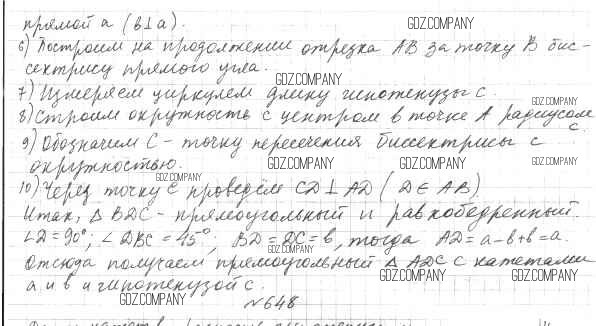 прямой a (b⊥a). GDZ.COMPANY
6) Построим на продолжении отрезка AB за точку B бис-
сектрису прямого угла. GDZ.COMPANY
7) Измеряем циркулем длину гипотенузы c. GDZ.COMPANY
8) Строим окружность с центром в точке A радиусом
9) Обозначим C - точку пересечения биссектрисы с c.
окружностью. GDZ.COMPANY GDZ.COMPANY
10) Через точку C проведём CD⊥AD (D∈AB)
Итак, △BDC - прямоугольный и равнобедренный.
∠D=90°, ∠DBC=45°, BD=DC=b, тогда AD=a-b+b=a.
Отсюда получаем прямоугольный △ADC с катетами
a и b и гипотенузой c. GDZ.COMPANY GDZ.COMPANY
GDZ.COMPANY №648